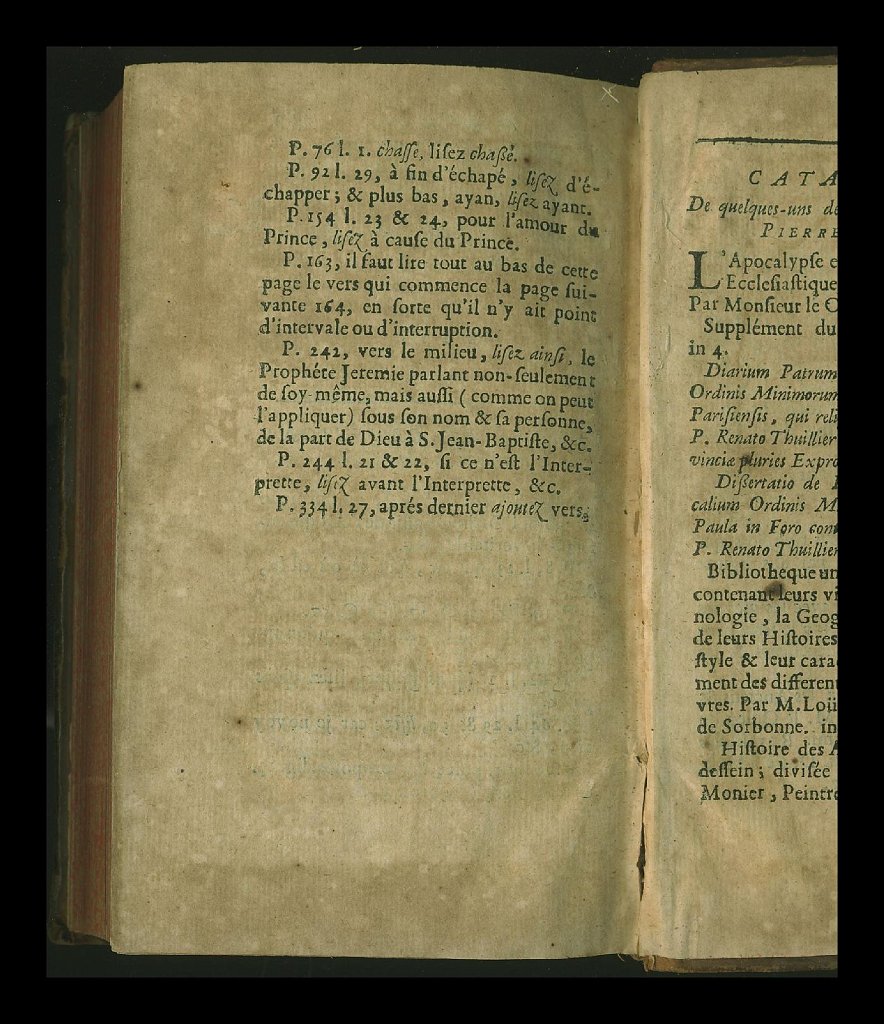 P. 76 l. 1. chaſſe, liſez chaßé.
P. 92 l. 29, à fin d'échapé, liſez d'é-
chapper; & plus bas, ayan, liſez ayant.
P. 154 l. 23 & 24, pour l'amour du
Prince, liſez à cauſe du Prince.
P. 163, il faut lire tout au bas de cette
page le vers qui commence la page ſui-
vante 164, en ſorte qu'il n'y ait point
d'intervale ou d'interruption.
P. 242, vers le milieu, liſez ainſi, le
Prophéte Jeremie parlant non-ſeulement
de ſoy-même, mais auſſi ( comme on peut
l'appliquer) ſous ſon nom & ſa perſonne,
de la part de Dieu à S. Jean-Baptiſte, &c.
P. 244 l. 21 & 22, ſi ce n'eſt l'Inter-
prette, liſez avant l'Interprette, &c.
P. 334 l. 27, aprés dernier ajoutez vers.
CATA
De quelques-uns de
PIERRE
L'Apocalypſe e
Eccleſiaſtique
Par Monſieur le
Supplément du
in 4.
Diarium Patrum
Ordinis Minimorum
Pariſienſis, qui reli
P. Renato Thuillier
vinciæ pluries Expro
Dißertatio de
calium Ordinis M
Paula in Foro con
P. Renato Thuillier
Bibliotheque un
contenant leurs vi
nologie, la Geog
de leurs Hiſtoires
ſtyle & leur cara
ment des differen
vres. Par M. Loüi
de Sorbonne. in
Hiſtoire des A
deſſein; diviſée
Monier, Peintre